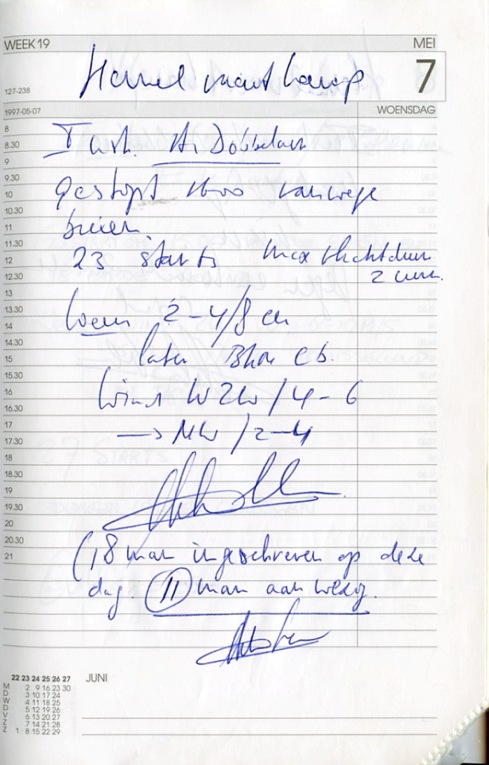 WEEK 19 MEI
Hemelvaart kamp 7
127-238
1997-05-07 WOENSDAG
8
8.30 Instr.
9
9.30 gestopt 1600 vanwege
10
10.30
11 buien.
11.30 23 starts max vluchtduur
12
12.30 2 uur.
13
13.30 Weer 2-4/8 cu
14
14.30 later Bkn cb.
15
15.30
16 Wind WZW/4-6
16.30
17 → NW/2-4
17.30
18
18.30
19
19.30
20
20.30
21 (18 man ingeschreven op deze
dag. 11 man aanwezig.
22 23 24 25 26 27 JUNI
M 2 9 16 23 30
D 3 10 17 24
W 4 11 18 25
D 5 12 19 26
V 6 13 20 27
Z 7 14 21 28
Z 1 8 15 22 29